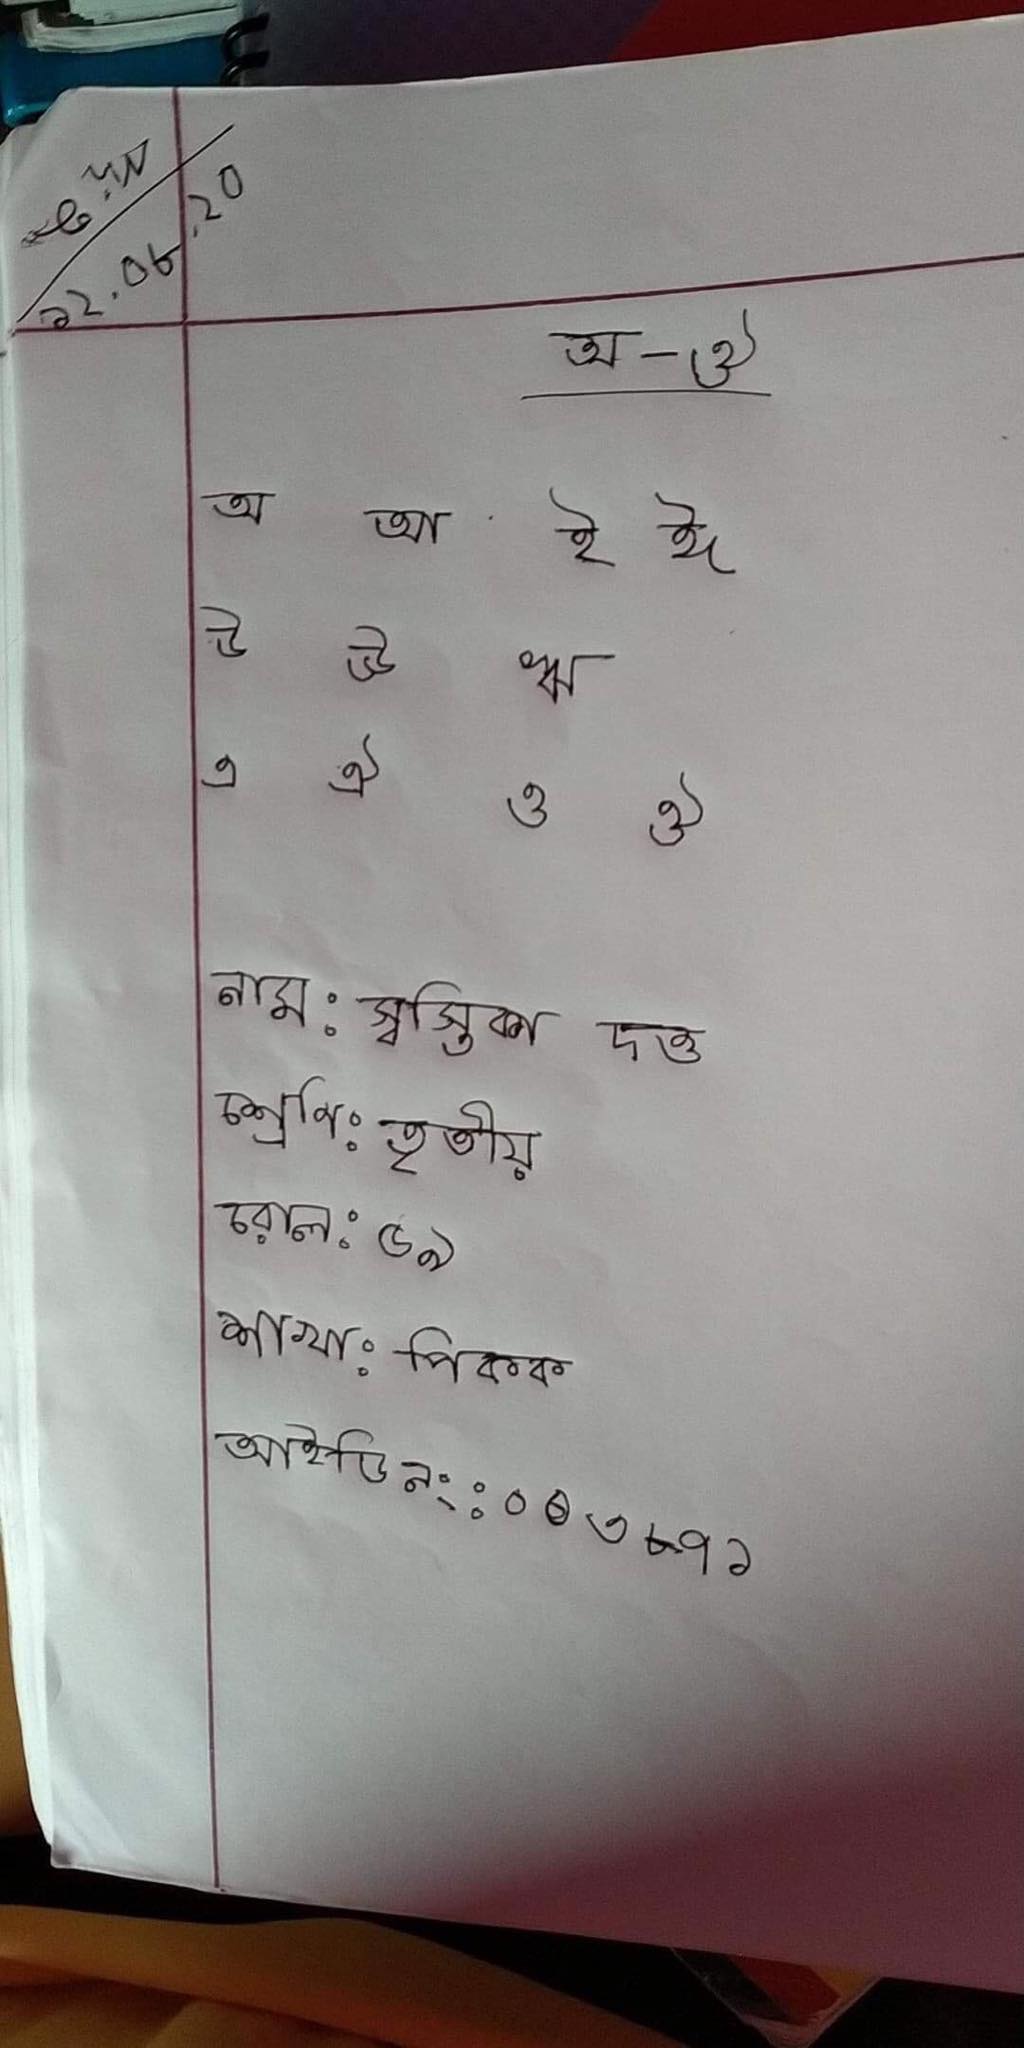 অ-ঔ
অ আ ই ঈ
উ ঊ ঋ
এ ঐ ও ঔ
নাম: স্বস্তিকা দত্ত
শ্রেণি: তৃতীয়
রোল: ৫৯
শাখা: পিকক
আইডি নং: ০৪৩৮৭১